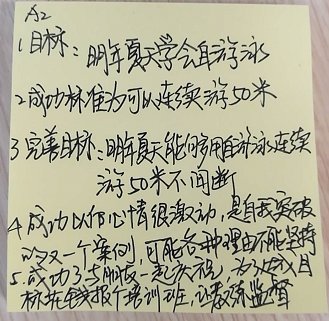 A2
1 目标：明年夏天学会自游泳
2 成功标准为可以连续游50米
3 完善目标：明年夏天能够用自游泳连续
游50米不间断
4 成功以后心情很激动，是自我突破
的又一个案例，可能各种理由不能坚持
5. 成功了与朋友一起庆祝，为了达成目
标在钱报个培训班，让教练监督